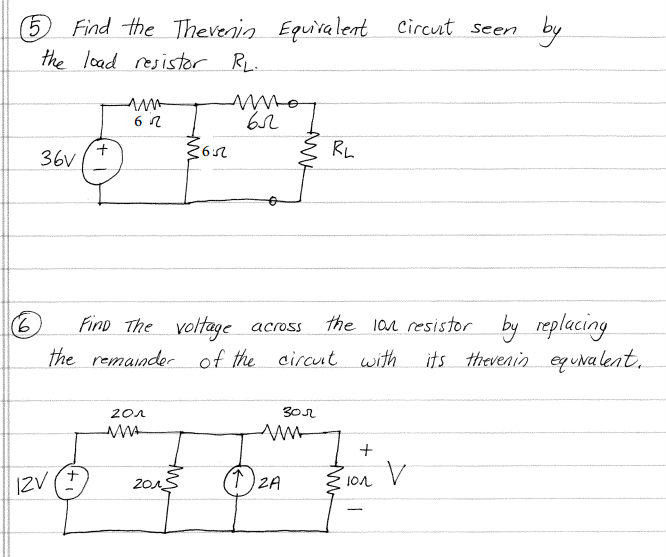 ⑤ Find the Thevenin Equivalent circuit seen by
the load resistor RL.
6Ω
6Ω
36V
+
6Ω
RL
⑥ Find The voltage across the 10Ω resistor by replacing
the remainder of the circuit with its thevenin equivalent.
20Ω
30Ω
+
12V
+
-
20Ω
↑
2A
10Ω
V
-